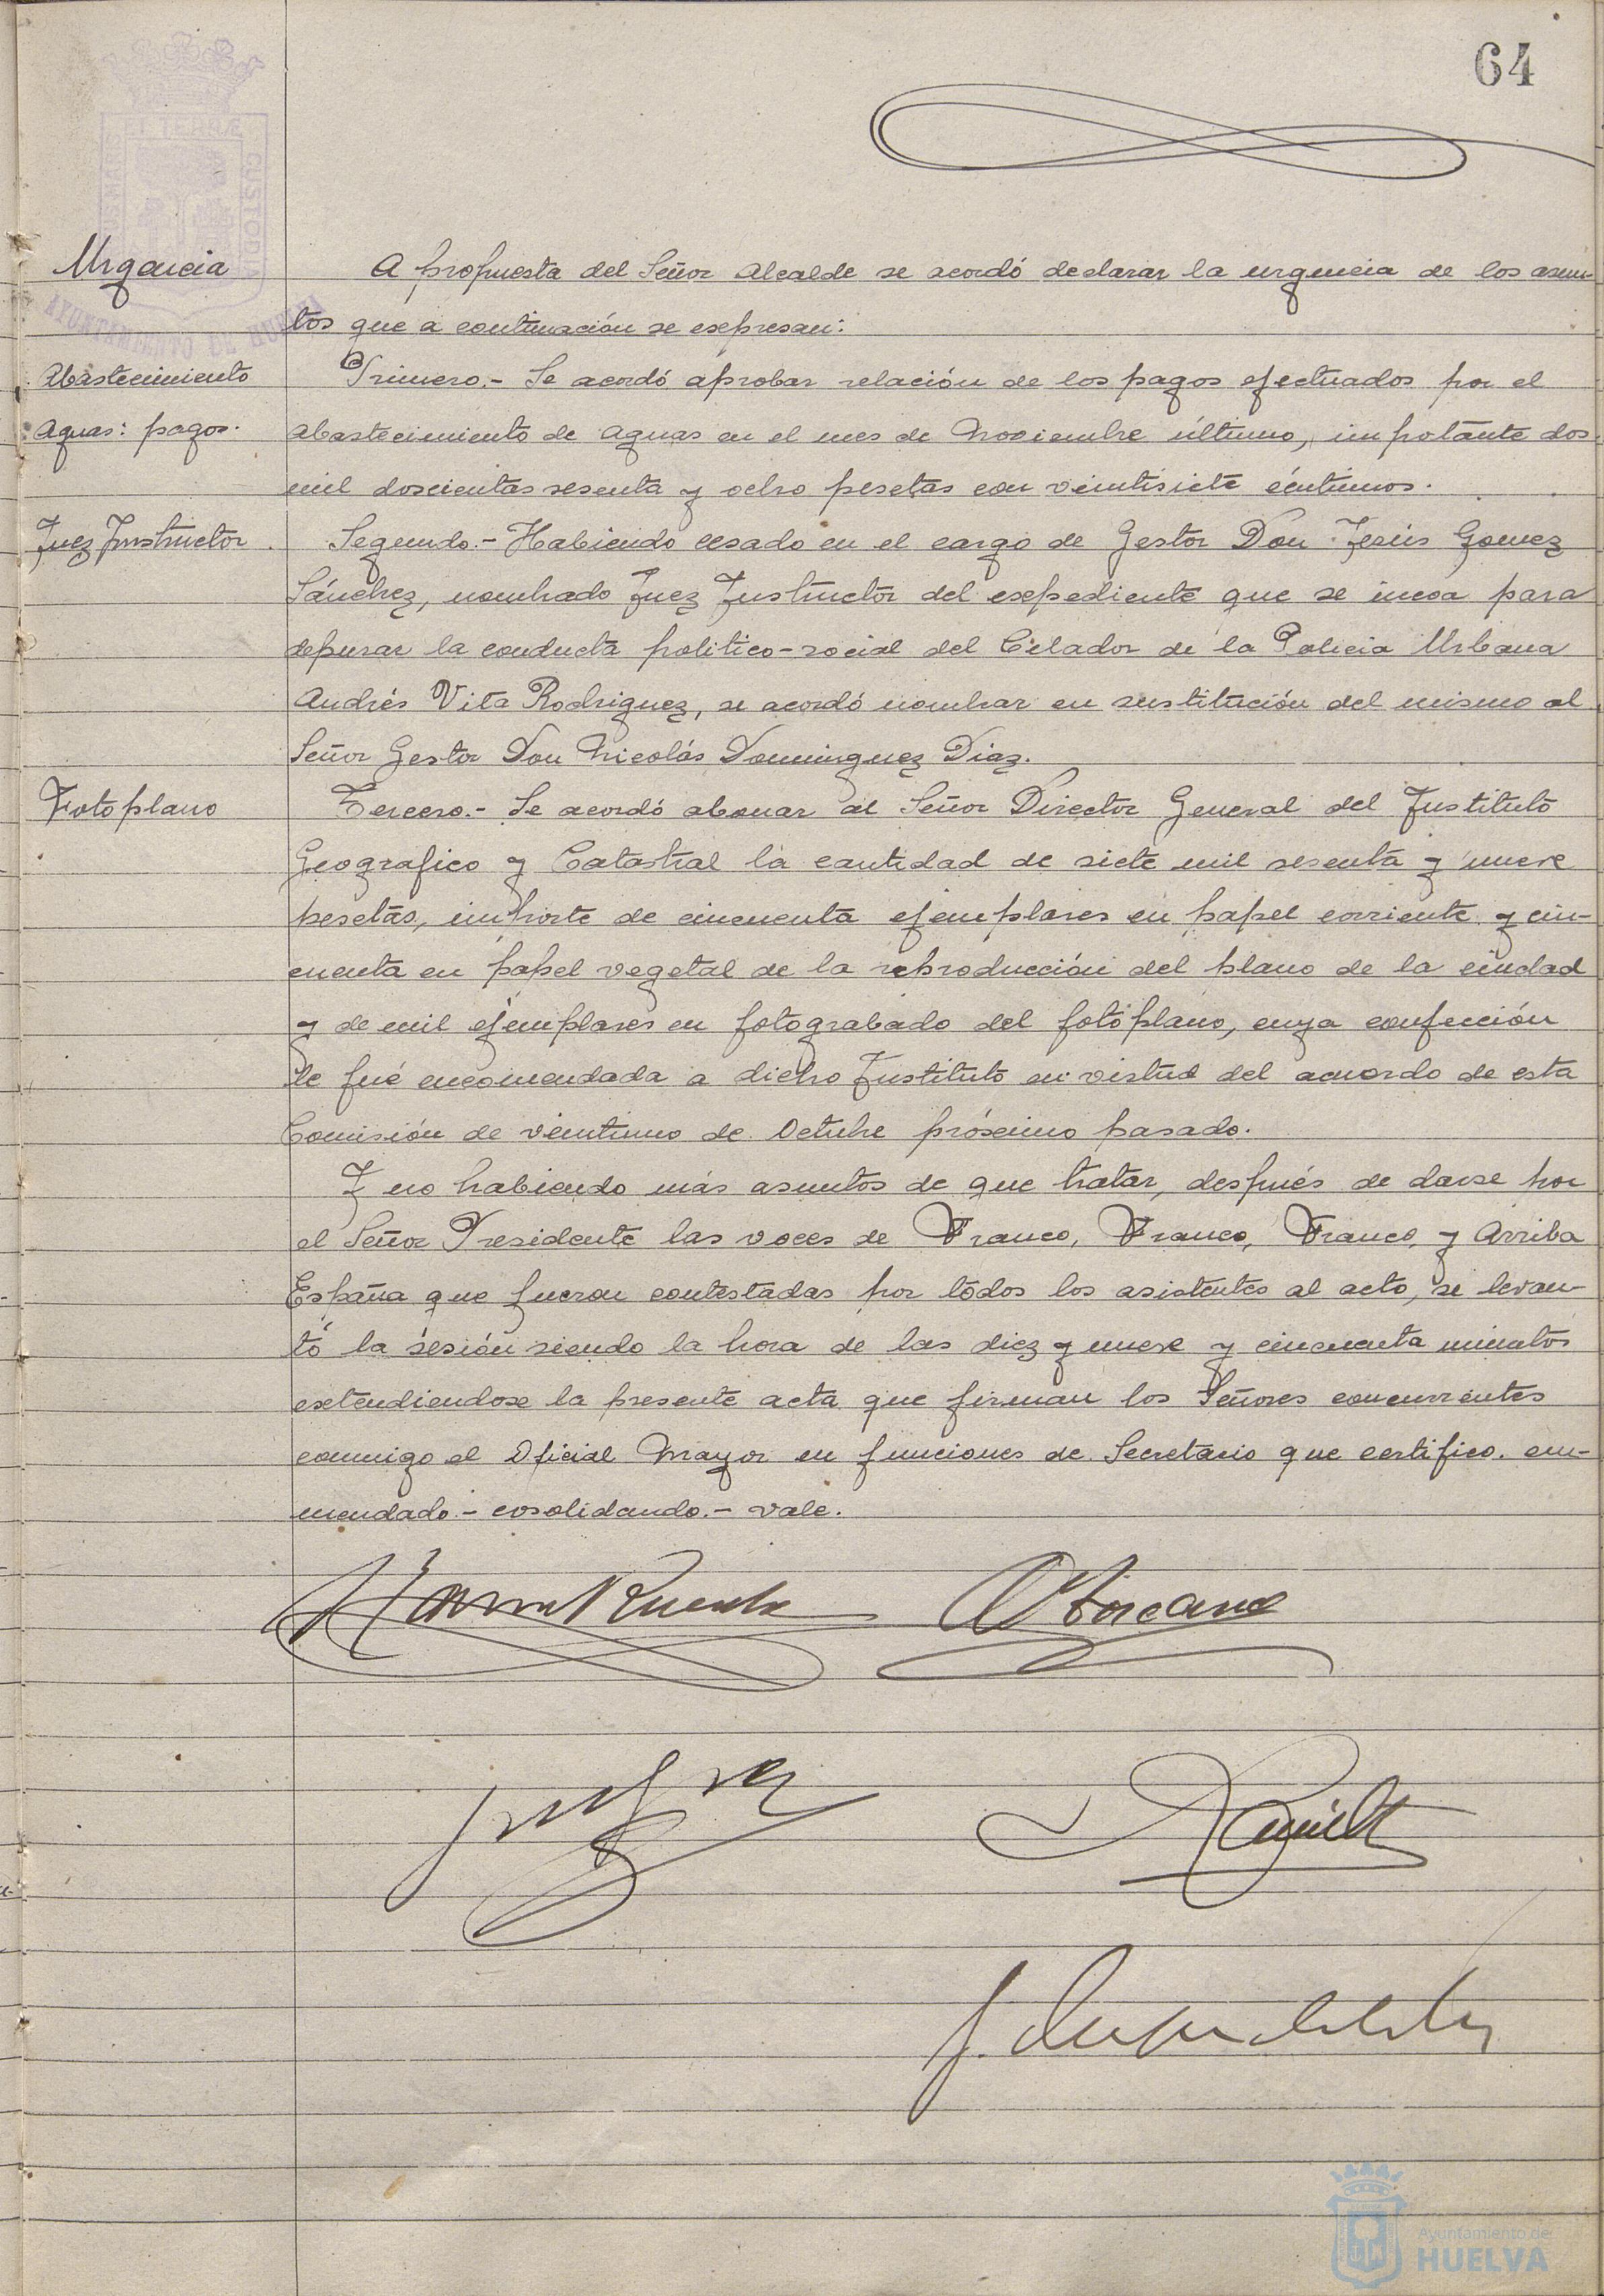 64
Urgencia
A propuesta del Señor Alcalde se acordó declarar la urgencia de los asun-
tos que a continuación se expresan:
Abastecimiento
Aguas: pagos.
Primero.- Se acordó aprobar relación de los pagos efectuados por el
abastecimiento de aguas en el mes de Noviembre último, impotante dos
mil doscientas sesenta y ocho pesetas con veintisiete céntimos.
Juez Instructor
Segundo.- Habiendo cesado en el cargo de Gestor Don Jesús Gomez
Sánchez, nombrado Juez Instructor del expediente que se incoa para
depurar la conducta politico-social del Celador de la Policia Urbana
Andrés Vita Rodriguez, se acordó nombrar en sustitución del mismo al
Señor Gestor Don Nicolás Dominguez Diaz.
Fotoplano
Tercero.- Se acordó abonar al Señor Director General del Instituto
Geografico y Catastral la cantidad de siete mil sesenta y nueve
pesetas, importe de cincuenta ejemplares en papel corriente y cin-
cuenta en papel vegetal de la reproducción del plano de la ciudad
y de mil ejemplares en fotograbado del fotoplano, cuya confección
le fué encomendada a dicho Instituto en virtud del acuerdo de esta
Comisión de veintiuno de Octubre próximo pasado.
Y no habiendo más asuntos de que tratar, después de darse por
el Señor Presidente las voces de Franco, Franco, Franco, y Arriba
España que fueron contestadas por todos los asistentes al acto, se levan-
tó la sesión siendo la hora de las diez y nueve y cincuenta minutos
extendiendose la presente acta que firman los Señores concurrentes
conmigo el Oficial Mayor en funciones de Secretario que certifico. em-
mendado.- cosolidando.- vale.
Ayuntamiento de
HUELVA